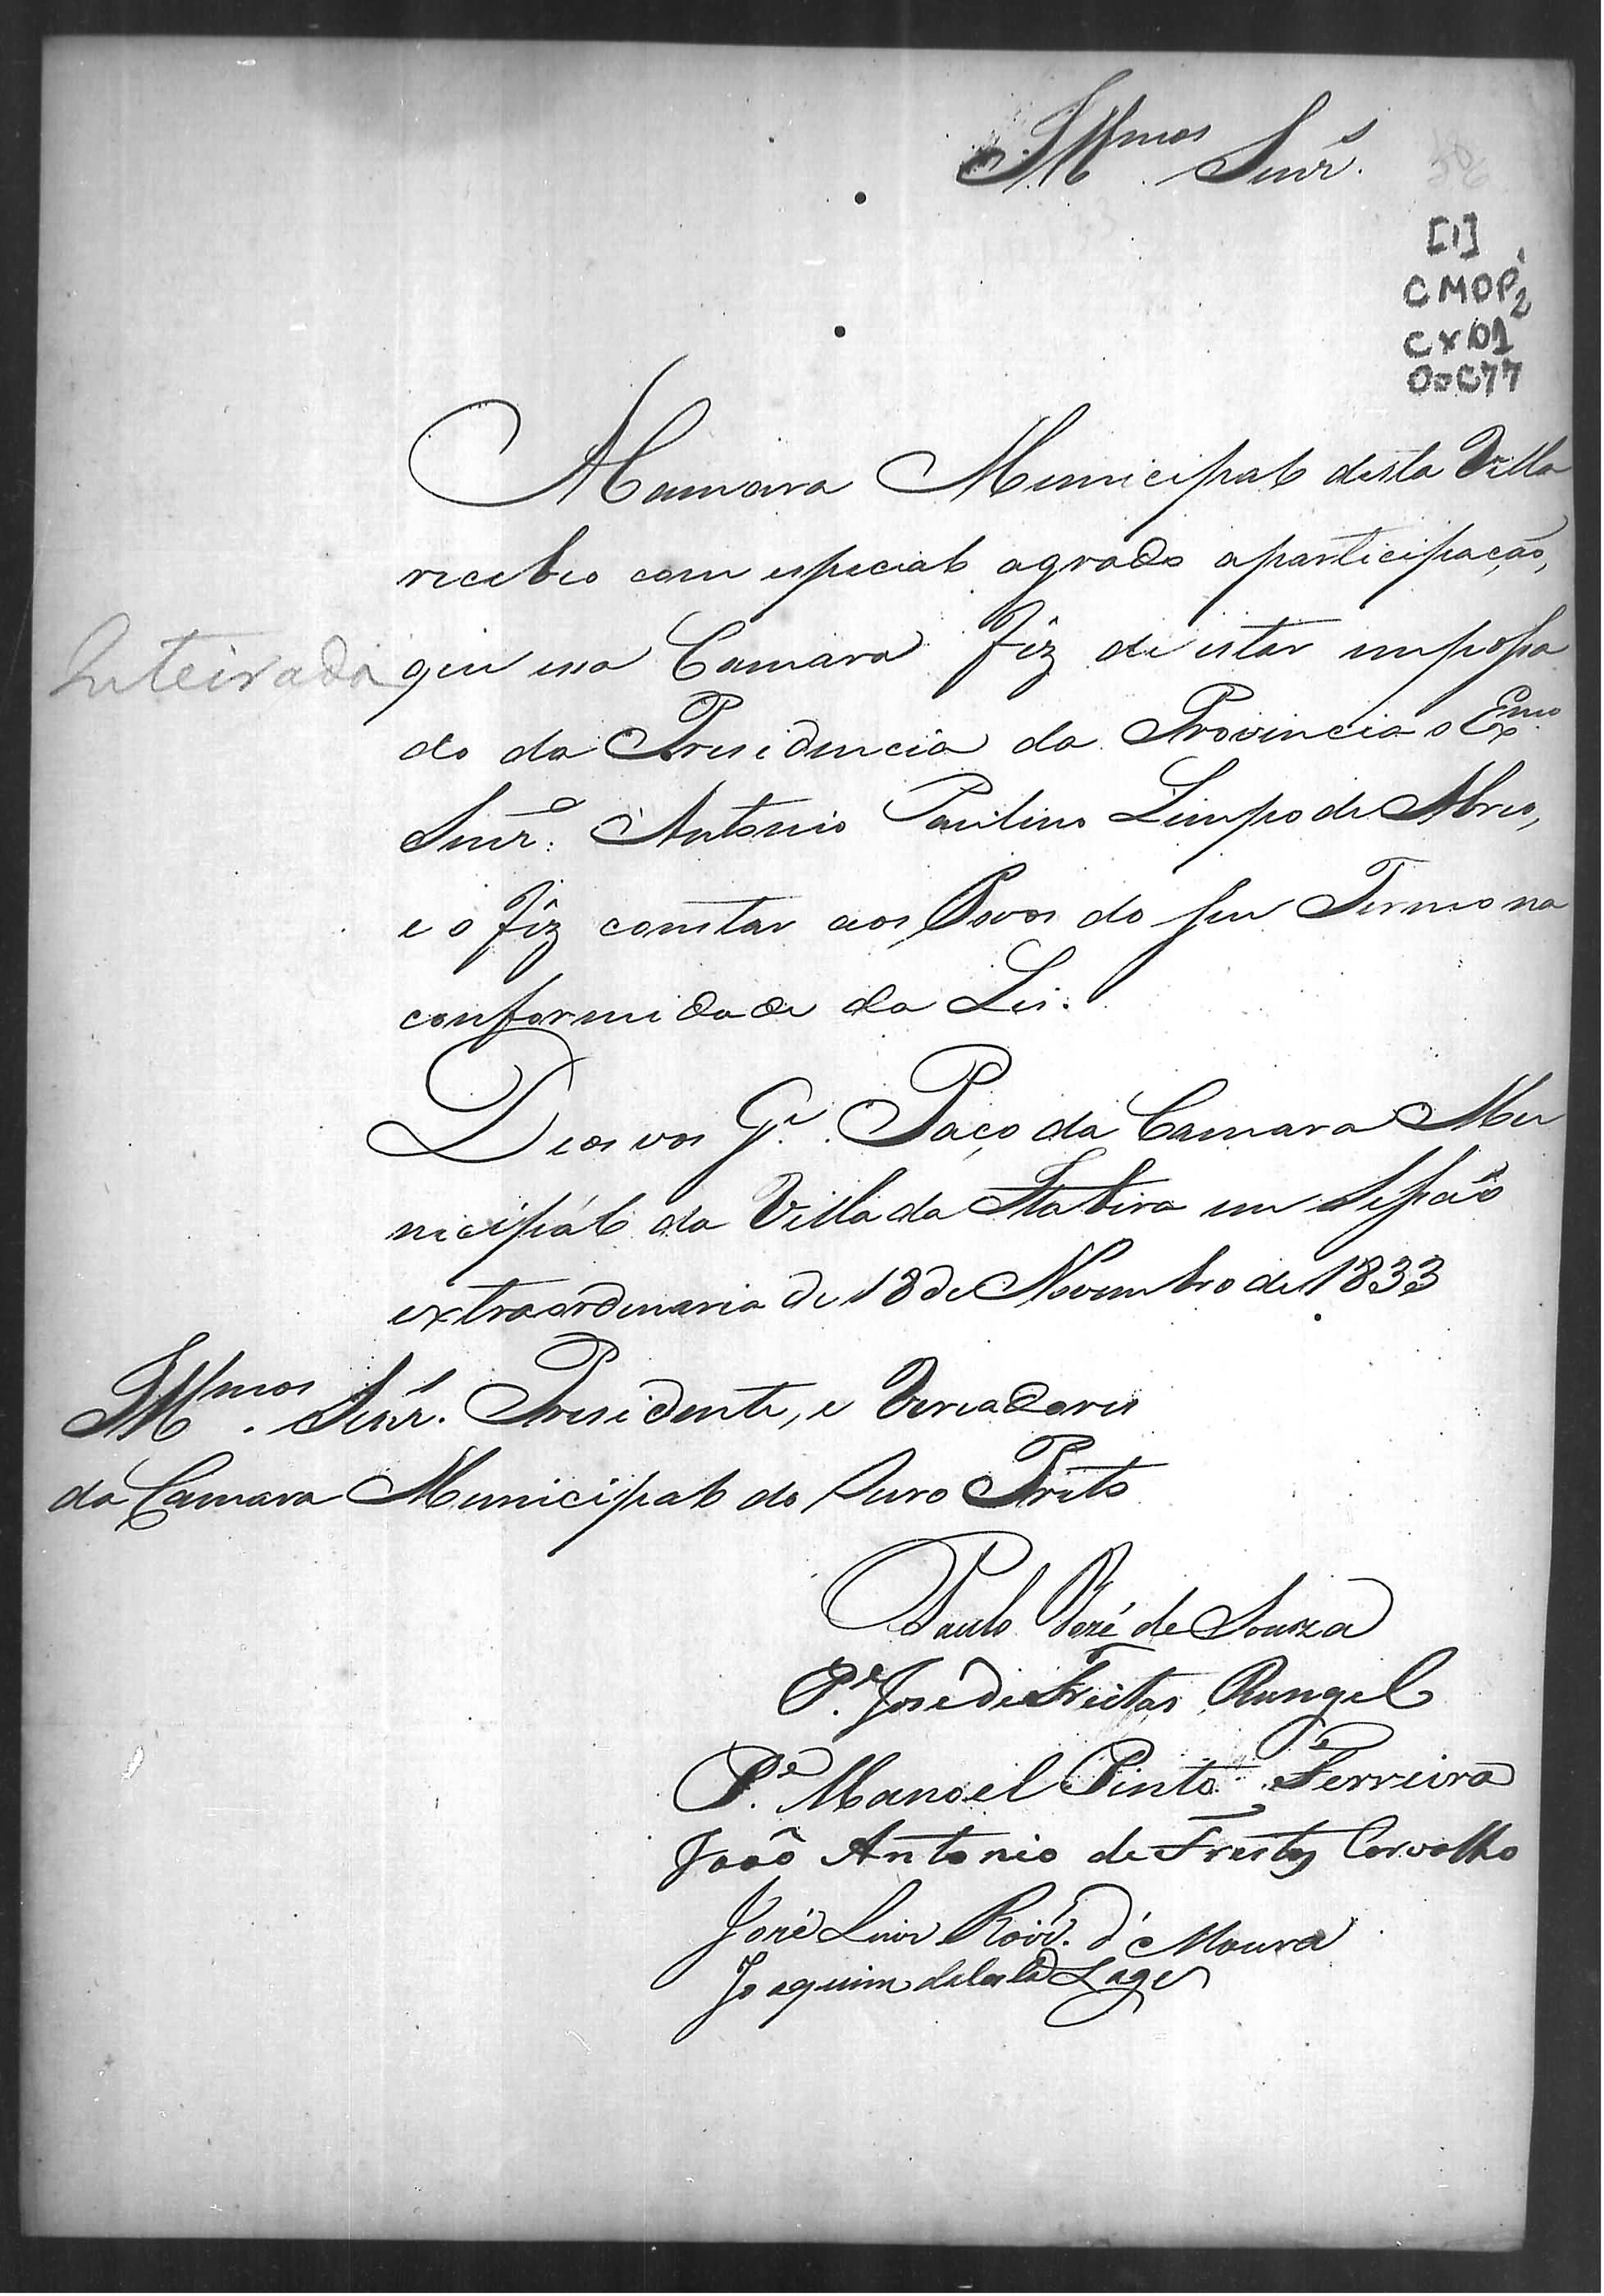 Illmos Snrs.
[1]
CMOP
Cx 01
Doc 77
A Camara Municipal desta Villa
recebeo com especial agrado aparticipação,
Inteirada
que essa Camara fêz de estar empossa
do da Presidencia da Provincia o Exmo
Snr. Antonio Paulino Limpo de Abreo,
e o fêz constar aos Povos do seu Termo na
conformidade da Lei.
Deos vos Ge. Paço da Camara Mu
nicipál da Villa da Itabira em Sessão
extraordenaria de 18 de Novembro de 1833
Illmos. Snrs. Presidente, e Vereadores
da Camara Municipal do Ouro Preto
Paulo José de Souza
Pe. José de Freitas Rangel
Pe. Manoel Pinto Ferreira
João Antonio de Freitas Carvalho
José Luis Roiz. d' Moura
Joaquim da Costa Lage